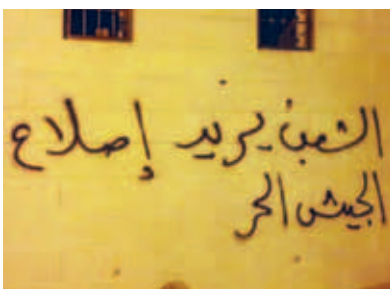 الشعب يريد إصلاح
الجيش الحر